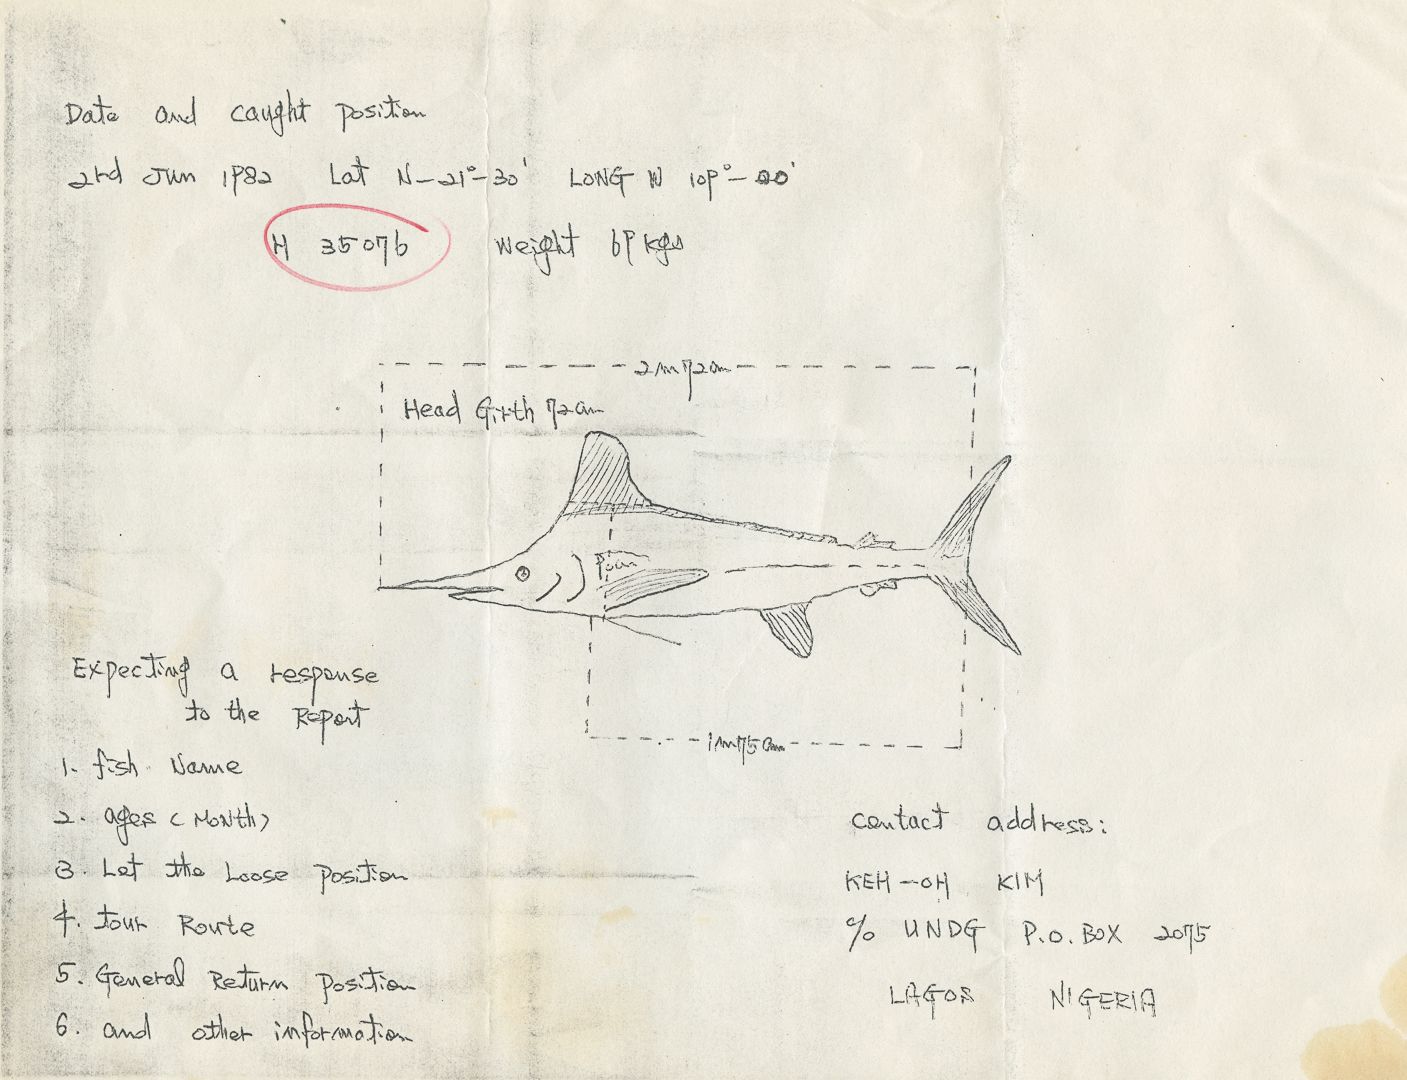 Date and caught position
2rd Jun 1982 Lat N-21°-30' LONG W 109°-00'
H 35076 Weight 69 kgs
2m72cm
Head Girth 72cm
9cm
1m75cm
Expecting a response
to the Report
1. fish Name
2. ages (Month)
3. Let the Loose position
4. tour Route
5. General Return position
6. and other information
contact address:
KEH-OH KIM
% UNDG P.O.BOX 2075
LAGOS NIGERIA